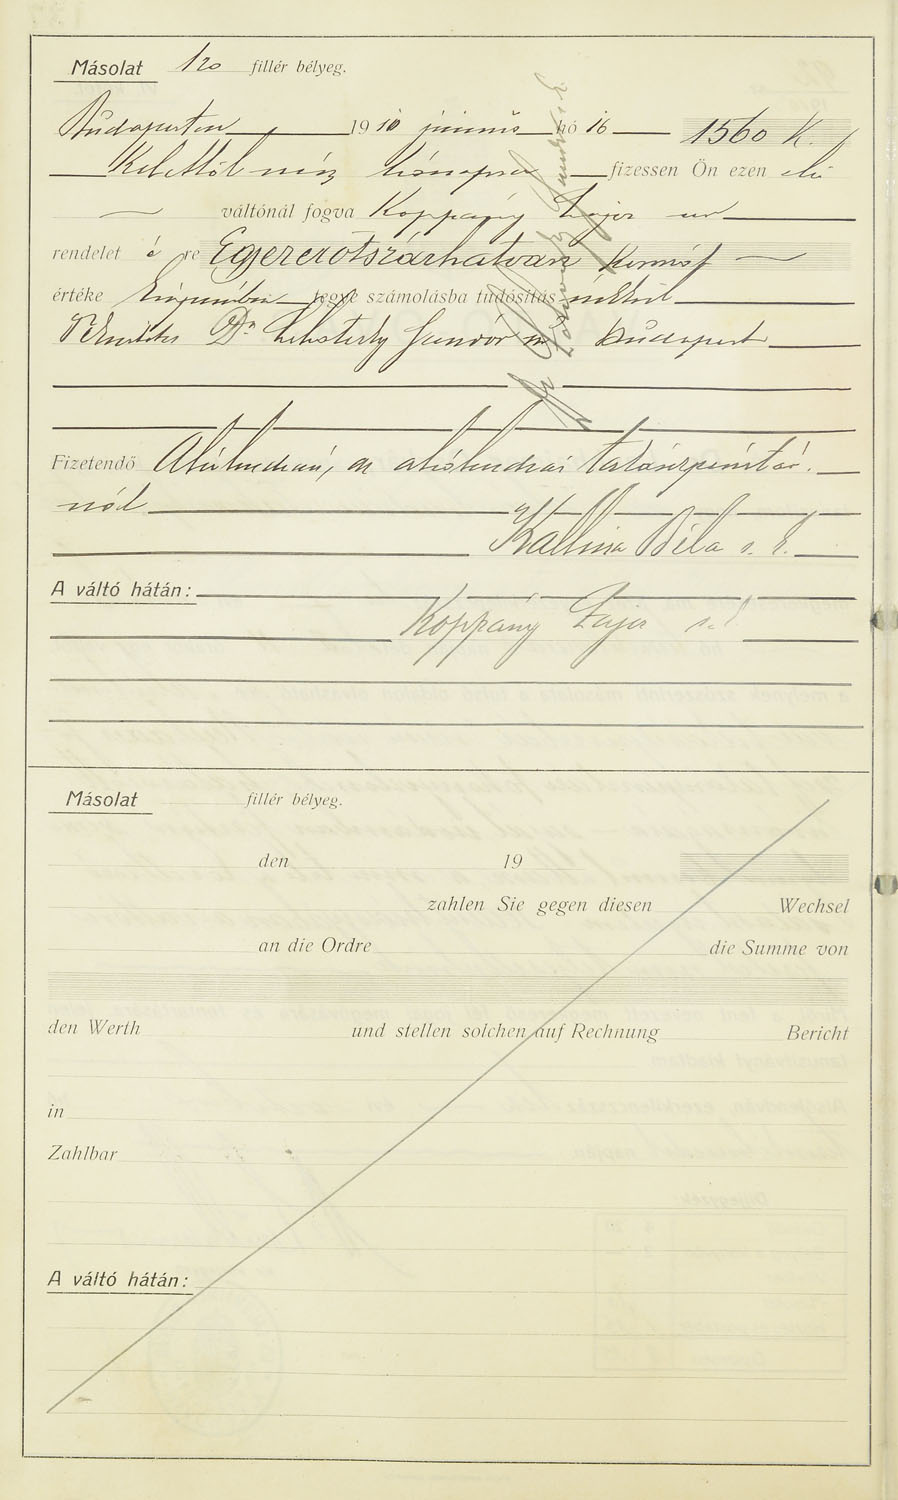 Másolat 120 fillér bélyeg.
Budapesten 1910 június hó 16 1560 K.
Kelettől hónapra fizessen Ön ezen
váltónál fogva Koppány Lajos úr
rendelet é re Egyezerötszázhatvan Koronát
értéke tegye számolásba tudósítás nélkül
Dr. Sándor úr Budapest
Fizetendő Alsólendván, az alsólendvai takarékpénztár
nál
Kallina Béla s. k.
A váltó hátán:
Koppány Lajos s. k.
Másolat fillér bélyeg.
den 19
zahlen Sie gegen diesen Wechsel
an die Ordre die Summe von
den Werth und stellen solchen auf Rechnung Bericht
in
Zahlbar
A váltó hátán: